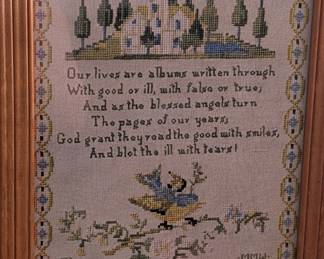 Our lives are albums written through
With good or ill, with false or true;
And as the blessed angels turn
The pages of our years;
God grant they read the good with smiles,
And blot the ill with tears!
·MMW·